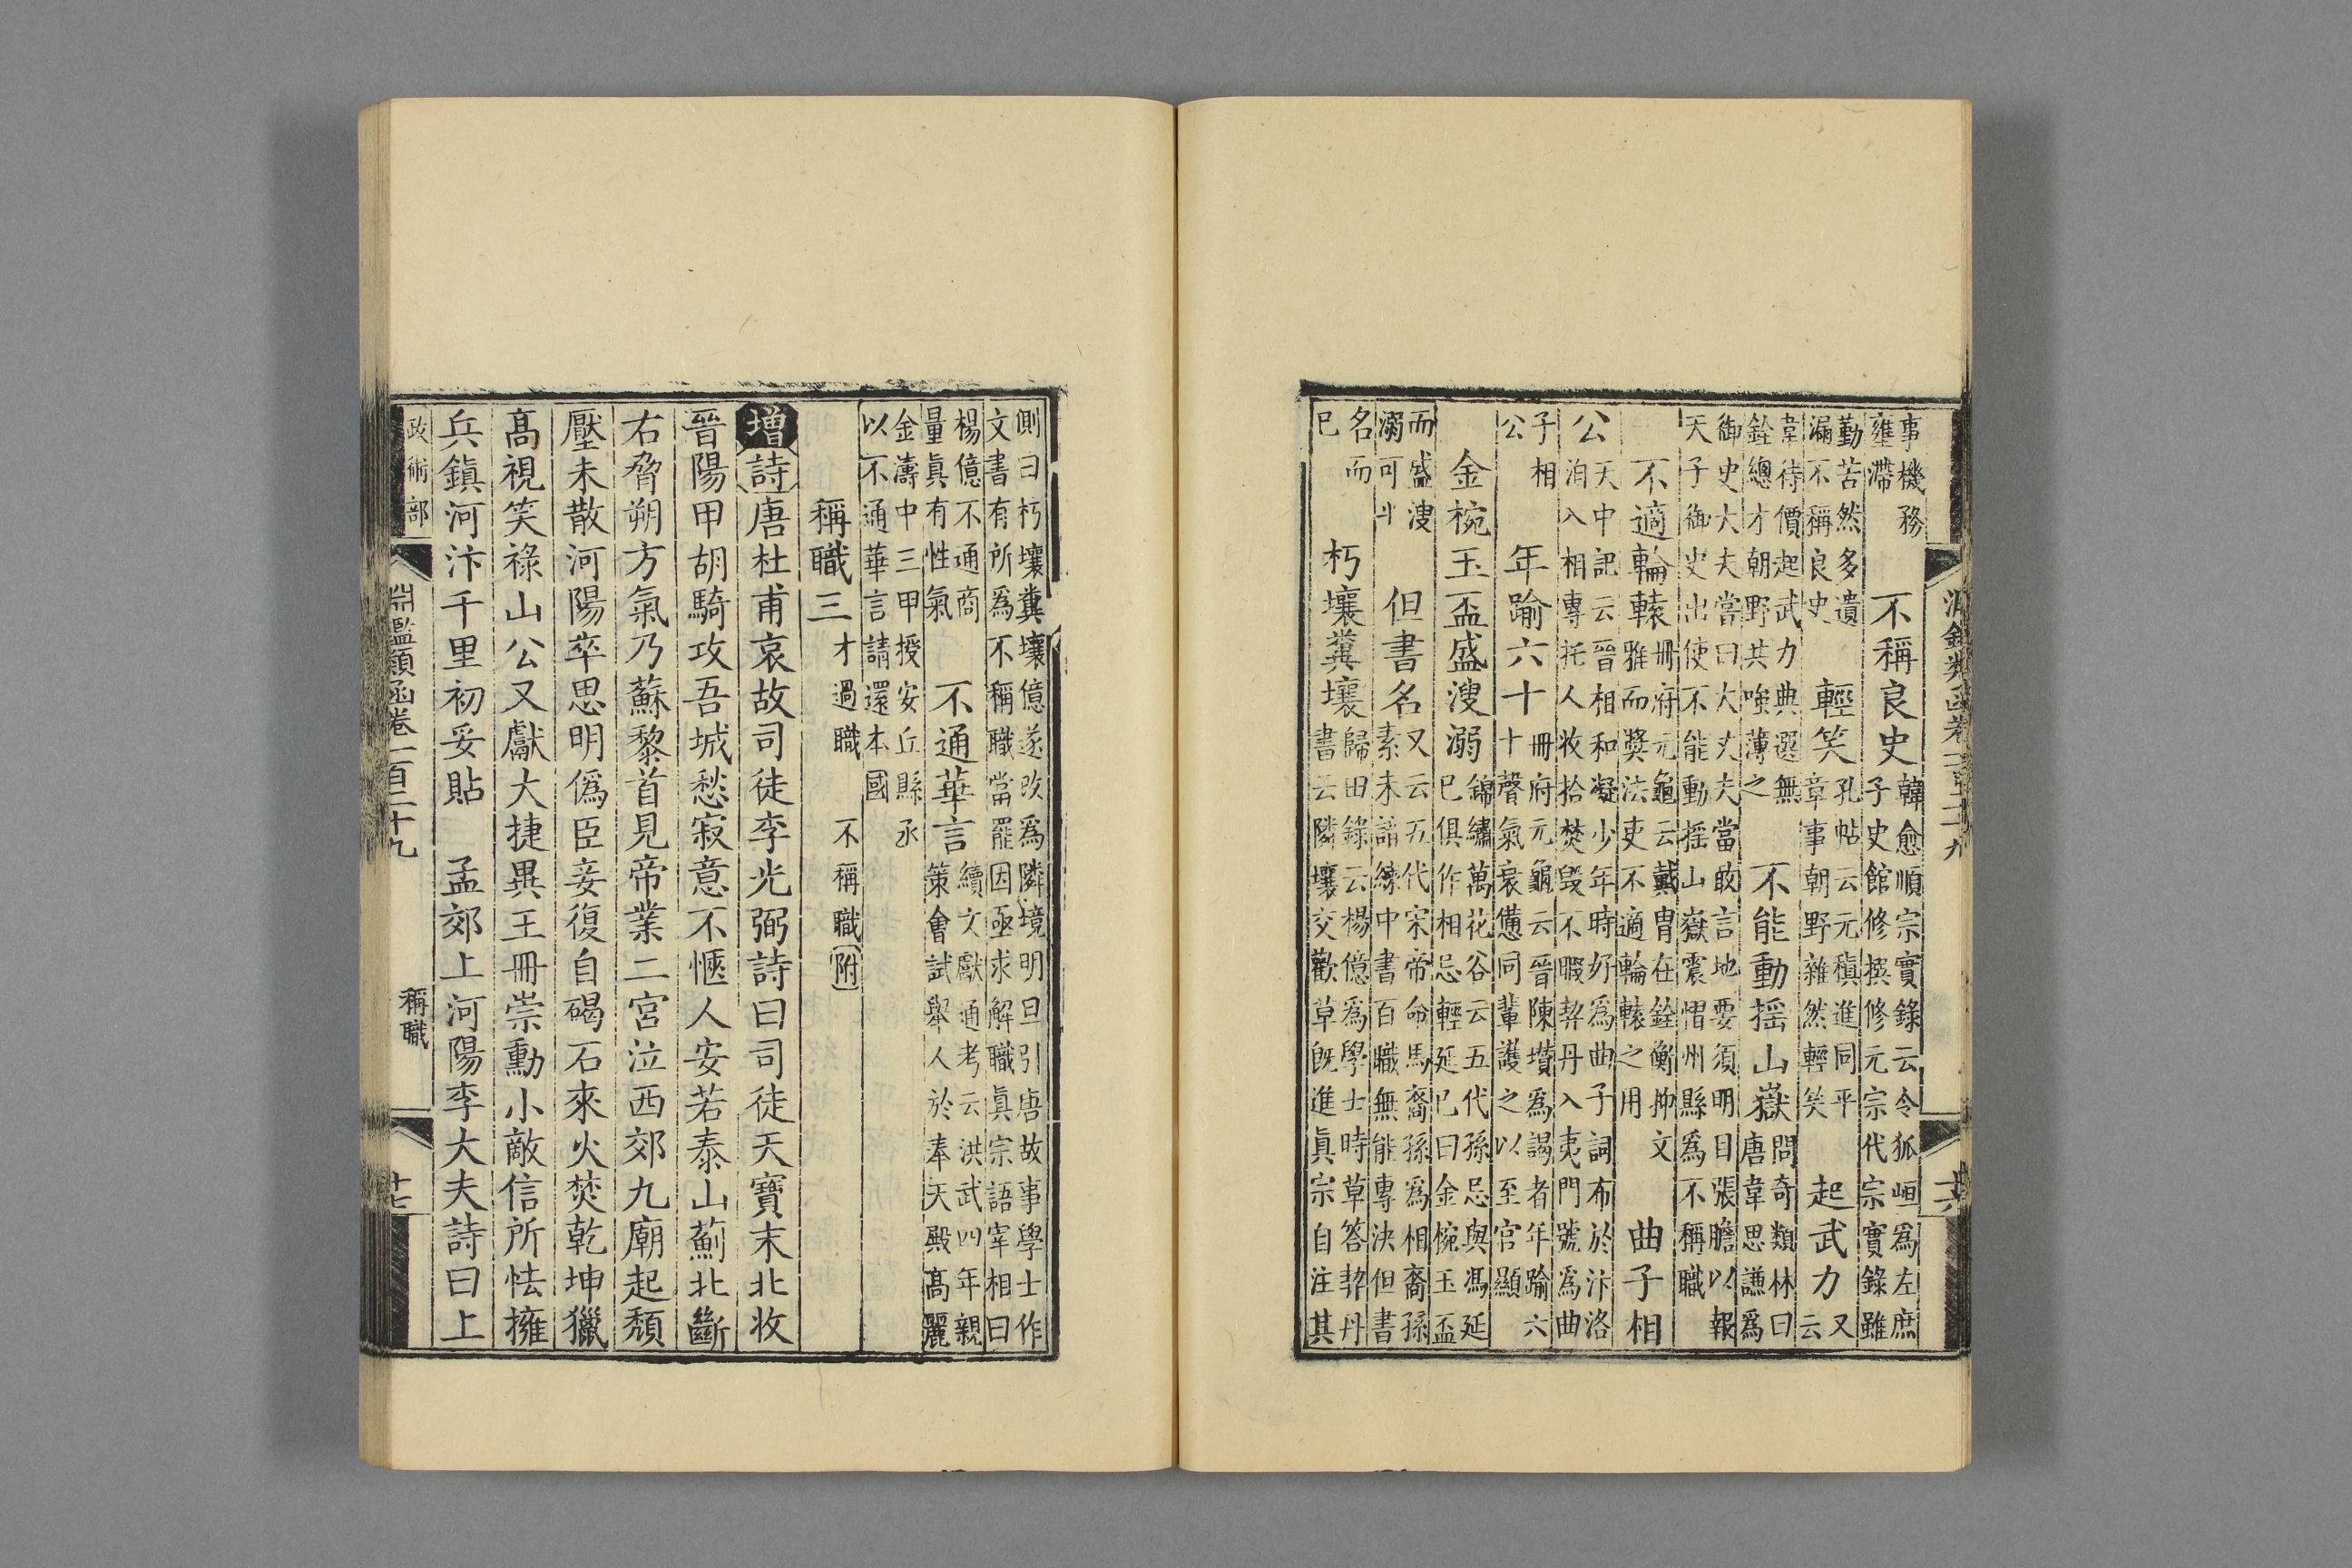 事機務壅滯　不稱良史韓愈順宗實錄云令狐峘爲左庶子史館修撰修元宗代宗實錄雖
勤苦然多遺漏不稱良史　輕笑孔帖云元稹進同平章事朝野雜然輕笑　起武力又云
韋待價起武力典選無銓總才朝野共嗤薄之　不能動揺山嶽問奇類林曰唐韋思謙爲
御史大夫當曰大丈夫當敢言地要須明目張膽以報天子御史出使不能動揺山嶽震慴州縣爲不稱職
不適輪轅冊府元龜云戴胄在銓衡抑文雅而獎法吏不適輪轅之用　曲子相
公天中記云晉相和凝少年時好爲曲子詞布於汴洛洎入相專托人收拾焚毀不暇契丹入夷門號爲曲
子相公　年踰六十冊府元龜云晉陳瓚爲謁者年踰六十聲氣衰憊同輩護之以至官顯
金椀玉盃盛溲溺錦繡萬花谷云五代孫忌與馮延巳俱作相忌輕延巳曰金椀玉盃
而盛溲溺可乎　但書名又云五代宋帝命馬裔孫爲相裔孫素未諳練中書百職無能專決但書
名而已　朽壤糞壤歸田錄云楊億爲學士時草答契丹書云隣壤交歡草旣進眞宗自注其
側曰朽壤糞壤億遂改爲隣境明旦引唐故事學士作文書有所爲不稱職當罷因亟求解職眞宗語宰相曰
楊億不通商量眞有性氣　不通華言續文獻通考云洪武四年親策會試舉人於奉天殿高麗
金濤中三甲授安丘縣丞以不通華言請還本國
稱職三才過職　不稱職附
增詩唐杜甫哀故司徒李光弼詩曰司徒天寶末北收
晉陽甲胡騎攻吾城愁寂意不愜人安若泰山薊北斷
右脅朔方氣乃蘇黎首見帝業二宮泣西郊九廟起頹
壓未散河陽卒思明僞臣妾復自碣石來火焚乾坤獵
高視笑祿山公又獻大捷異王冊崇勳小敵信所怯擁
兵鎮河汴千里初妥貼　孟郊上河陽李大夫詩曰上
政術部　淵鑑類函卷一百二十九　稱職　十七